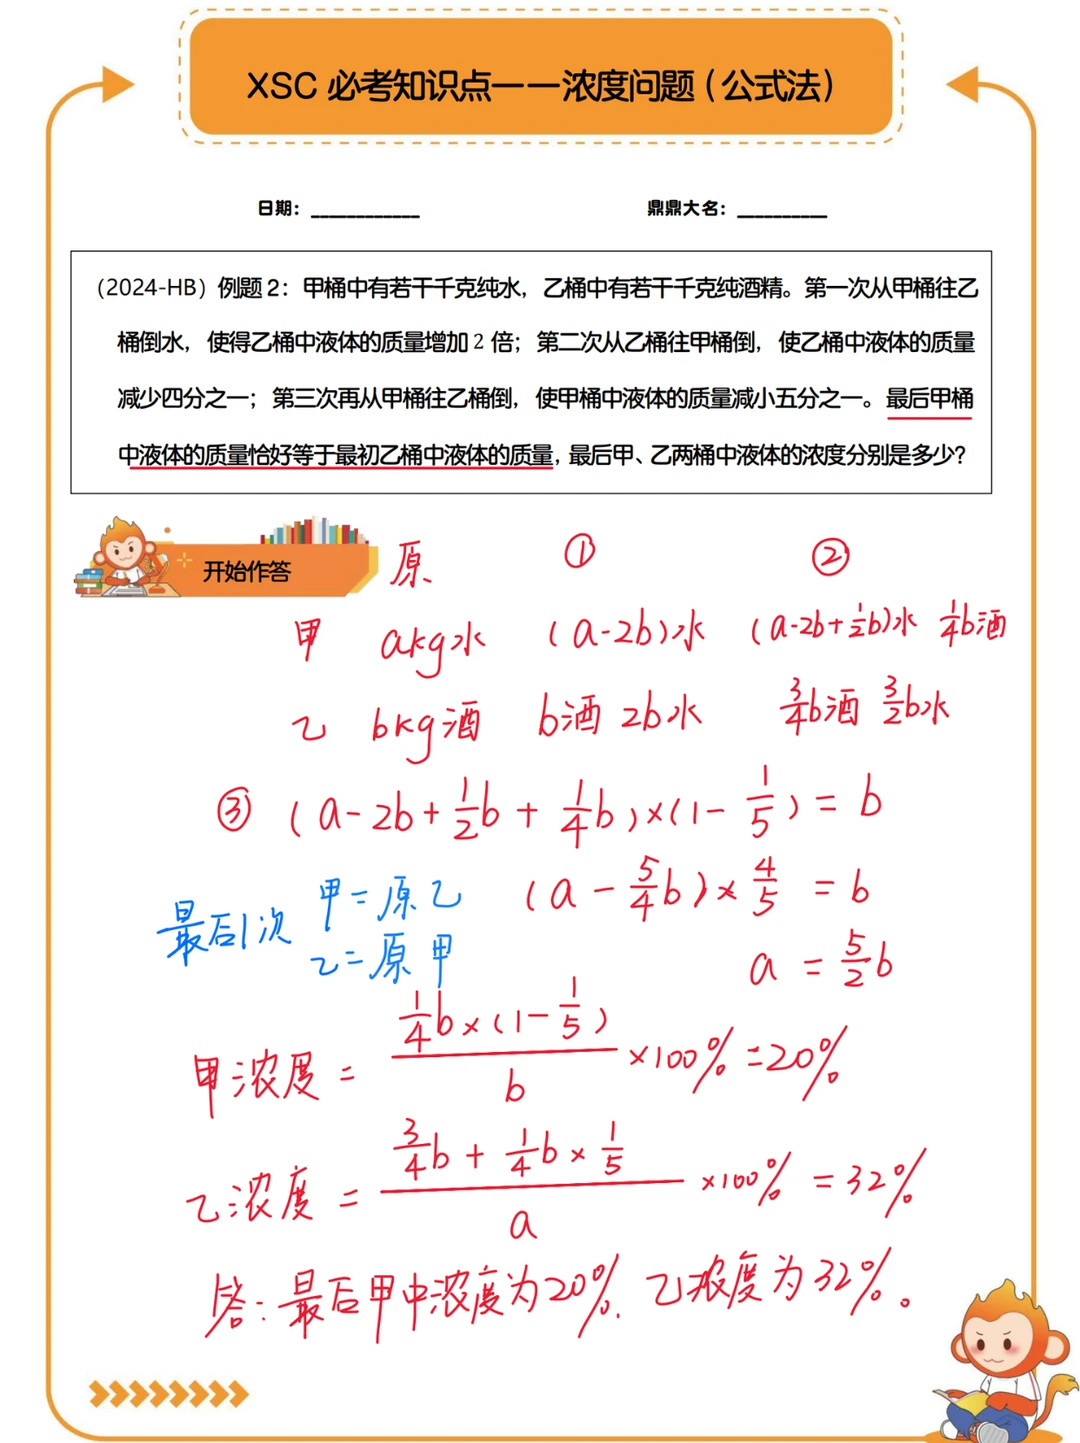 XSC 必考知识点——浓度问题（公式法）
日期：____________ 鼎鼎大名：__________
（2024-HB）例题 2：甲桶中有若干千克纯水，乙桶中有若干千克纯酒精。第一次从甲桶往乙
桶倒水，使得乙桶中液体的质量增加 2 倍；第二次从乙桶往甲桶倒，使乙桶中液体的质量
减少四分之一；第三次再从甲桶往乙桶倒，使甲桶中液体的质量减小五分之一。最后甲桶
中液体的质量恰好等于最初乙桶中液体的质量，最后甲、乙两桶中液体的浓度分别是多少？
开始作答
原 ① ②
甲 akg水 (a-2b)水 (a-2b+1/2b)水 1/4b酒
乙 bkg酒 b酒 2b水 3/4b酒 3/2b水
③ (a-2b+1/2b+1/4b)×(1-1/5)=b
最后1次 甲=原乙 (a-5/4b)×4/5=b
乙=原甲 a=5/2b
甲浓度=1/4b×(1-1/5)/b×100%=20%
乙浓度=3/4b+1/4b×1/5/a×100%=32%
答：最后甲中浓度为20%．乙浓度为32%。